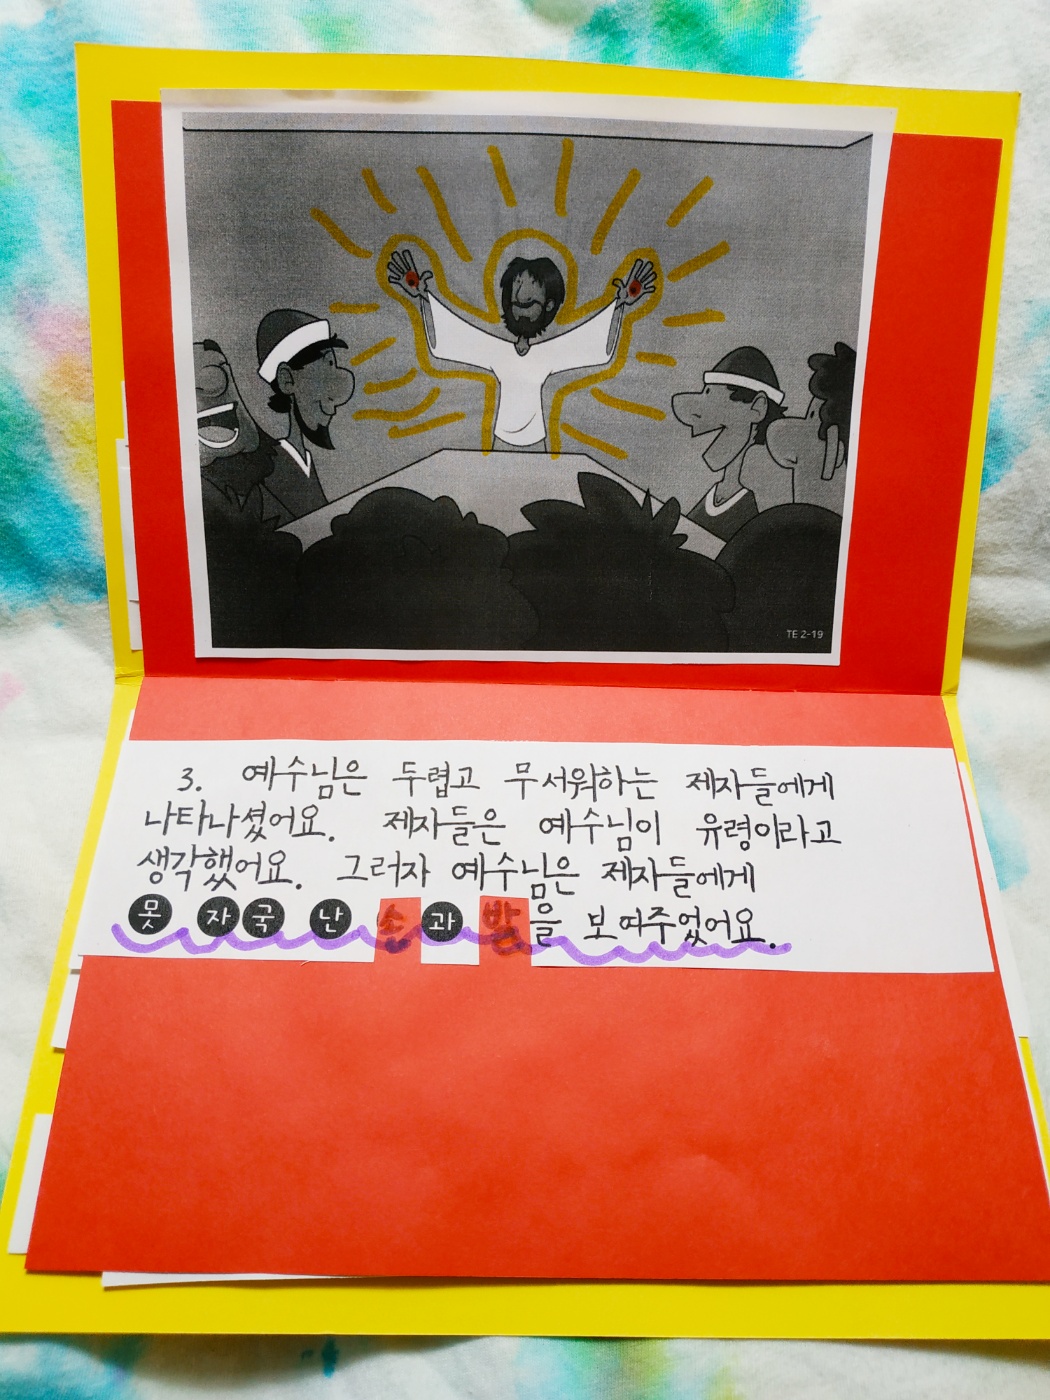 TE 2-19
3. 예수님은 두렵고 무서워하는 제자들에게
나타나셨어요. 제자들은 예수님이 유령이라고
생각했어요. 그러자 예수님은 제자들에게
못 자국 난 손과 발을 보여주었어요.